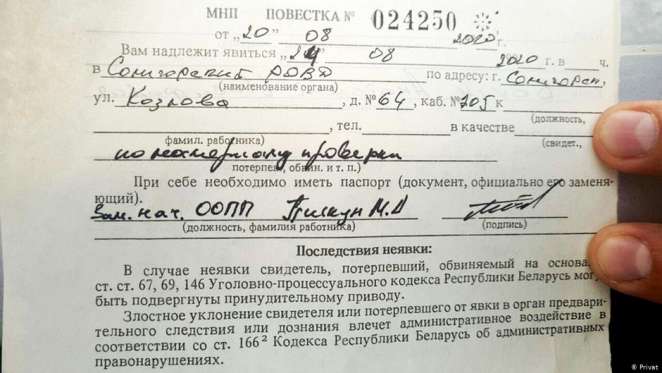 МНП ПОВЕСТКА № 024250
от "20" 08 2020 г.
Вам надлежит явиться "24" 08 2020 г. в ч.
в Солигорский РОВД по адресу: г. Солигорск,
(наименование органа)
ул. Козлова, д. № 64, каб. № 205 к
(должность,
, тел. в качестве
фамил. работника) (свидет.,
проверки
потерпев., обвин. и т. п.)
При себе необходимо иметь паспорт (документ, официально его заменя-
ющий).
Зам. нач. ООПП М.А
(должность, фамилия работника) (подпись)
Последствия неявки:
В случае неявки свидетель, потерпевший, обвиняемый на основа
ст. ст. 67, 69, 146 Уголовно-процессуального кодекса Республики Беларусь могу
быть подвергнуты принудительному приводу.
Злостное уклонение свидетеля или потерпевшего от явки в орган предвари-
тельного следствия или дознания влечет административное воздействие в
соответствии со ст. 166² Кодекса Республики Беларусь об административных
правонарушениях.
® Privat